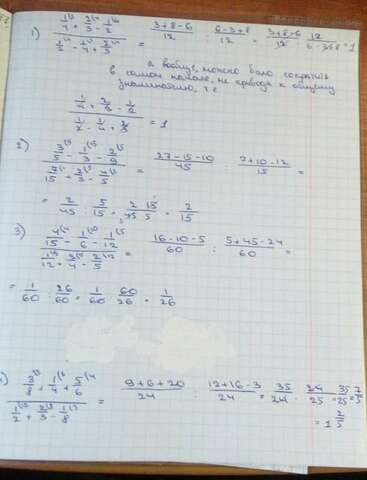 1) (1/4 + 2/3 - 1/2) / (1/2 - 1/4 + 2/3) = (3+8-6)/12 : (6-3+8)/12 = (3+8-6)/12 · 12/(6-3+8) = 1
а вообще, можно было сократить
в самом начале, не приводя к общему
знаменателю, т.е
(1/4 + 2/3 - 1/2) / (1/2 - 1/4 + 2/3) = 1
2) (3/5 - 1/3 - 2/9) / (7/15 + 2/3 - 4/5) = (27-15-10)/45 : (7+10-12)/15 =
= 2/45 : 5/15 = 2/45 · 15/5 = 2/15
3) (4/15 - 1/6 - 1/12) / (1/12 + 3/4 - 2/5) = (16-10-5)/60 : (5+45-24)/60 =
= 1/60 : 26/60 = 1/60 · 60/26 = 1/26
(3/8 + 1/4 + 5/6) / (1/2 + 2/3 - 1/8) = (9+6+20)/24 : (12+16-3)/24 = 35/24 · 24/25 = 35/25 = 7/5
= 1 2/5